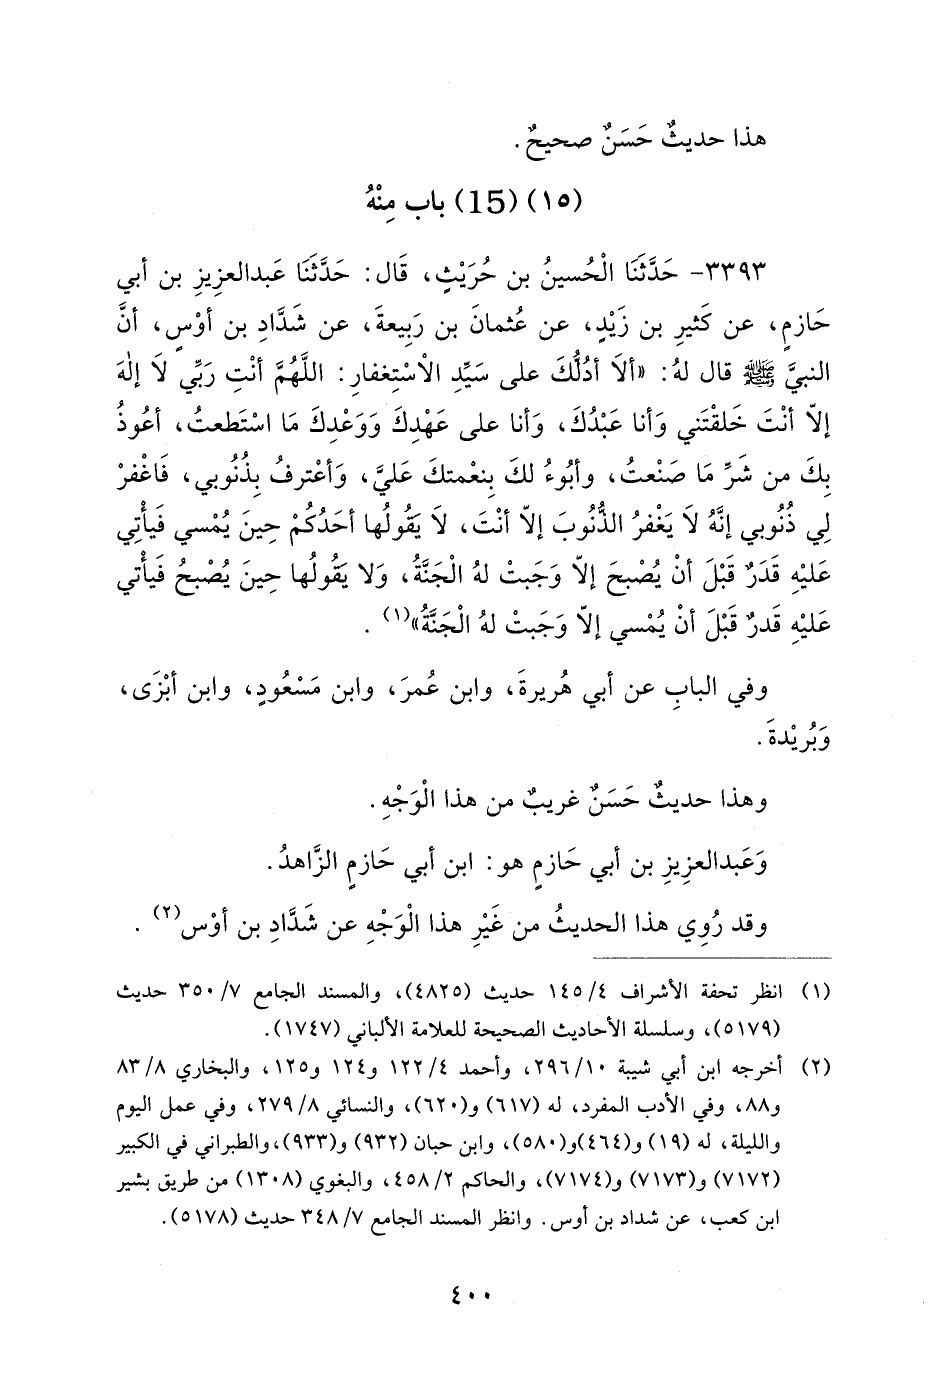 هذا حديثٌ حَسَنٌ صحيحٌ.
(١٥) (15) باب مِنْهُ
٣٣٩٣- حَدَّثَنَا الْحُسينُ بن حُرَيْثٍ، قَال: حَدَّثَنَا عَبدالعزيزِ بن أبي
حَازمٍ، عن كَثيرِ بن زَيْدٍ، عن عُثمانَ بن رَبِيعةَ، عن شَدَّادِ بن أوْسٍ، أنَّ
النبيَّ ﷺ قال لهُ: «ألاَ أدُلُّكَ على سَيِّدِ الاْسْتِغفارِ: اللَّهُمَّ أنْتِ رَبِّي لَا إلٰهَ
إلاّ أنْتَ خَلقْتَني وَأنا عَبْدُكَ، وَأنا على عَهْدِكَ وَوَعْدِكَ مَا اسْتَطعتُ، أعُوذُ
بِكَ من شَرِّ مَا صَنْعتُ، وأبُوءُ لكَ بِنعْمتكَ عَليَّ، وَأعْترفُ بِذُنُوبي، فَاغْفرْ
لِي ذُنُوبي إنَّهُ لَا يَغْفرُ الذُّنُوبَ إلاّ أنْتَ، لَا يَقُولُها أحَدُكُمْ حِينَ يُمْسي فَيأْتِي
عَليْهِ قَدَرٌ قَبْلَ أنْ يُصْبحَ إلاّ وَجَبتْ لهُ الْجَنَّةُ، وَلا يَقُولُها حِينَ يُصْبحُ فَيأْتي
عَليْهِ قَدرٌ قَبْلَ أنْ يُمْسي إلاّ وَجَبتْ لهُ الْجَنَّةُ»(١).
وفي البابِ عن أبي هُريرةَ، وابن عُمرَ، وابن مَسْعُودٍ، وابن أبْزَى،
وَبُريْدةَ.
وهذا حديثٌ حَسَنٌ غريبٌ من هذا الْوَجْهِ.
وَعَبدالعزِيزِ بن أبي حَازمٍ هو: ابن أبي حَازمٍ الزَّاهدُ.
وقد رُوِي هذا الحديثُ من غَيْرِ هذا الْوَجْهِ عن شَدَّادِ بن أوْس(٢).
(١) انظر تحفة الأشراف ٤/ ١٤٥ حديث (٤٨٢٥)، والمسند الجامع ٧/ ٣٥٠ حديث
(٥١٧٩)، وسلسلة الأحاديث الصحيحة للعلامة الألباني (١٧٤٧).
(٢) أخرجه ابن أبي شيبة ١٠/ ٢٩٦، وأحمد ٤/ ١٢٢ و١٢٤ و١٢٥، والبخاري ٨/ ٨٣
و٨٨، وفي الأدب المفرد، له (٦١٧) و(٦٢٠)، والنسائي ٨/ ٢٧٩، وفي عمل اليوم
والليلة، له (١٩) و(٤٦٤)و(٥٨٠)، وابن حبان (٩٣٢) و(٩٣٣)،والطبراني في الكبير
(٧١٧٢) و(٧١٧٣) و(٧١٧٤)، والحاكم ٢/ ٤٥٨، والبغوي (١٣٠٨) من طريق بشير
ابن كعب، عن شداد بن أوس. وانظر المسند الجامع ٧/ ٣٤٨ حديث (٥١٧٨).
٤٠٠